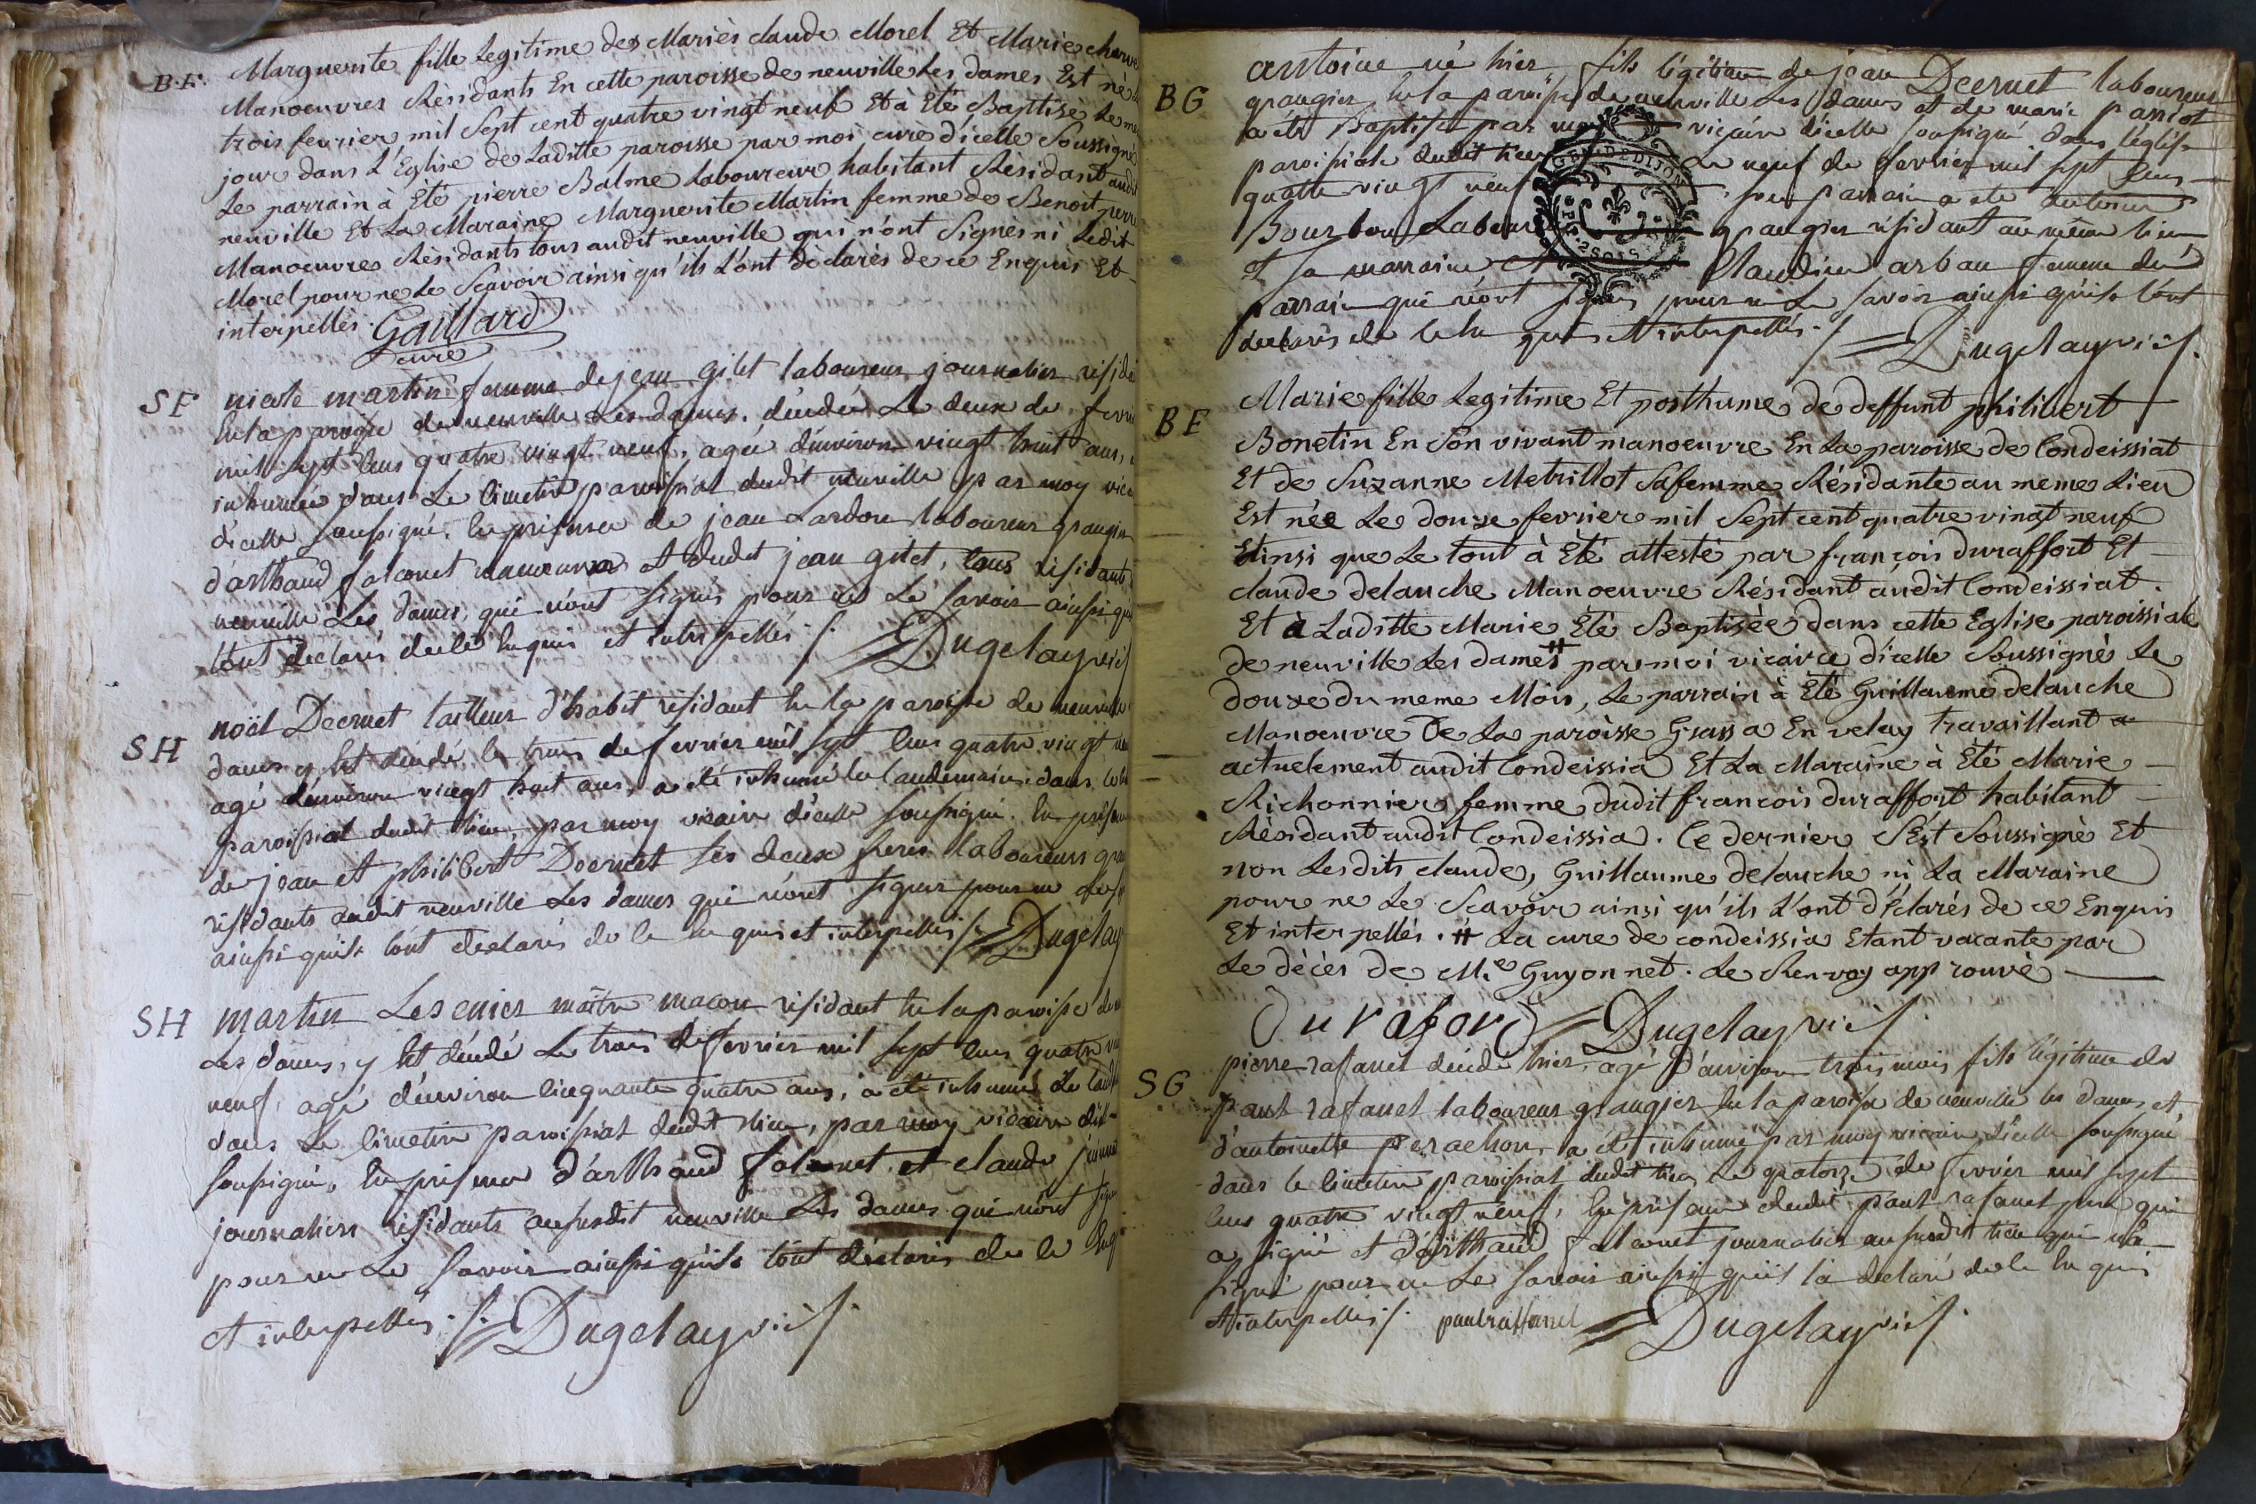 B.F. Marguerite fille Legitime des Mariés claude Morel Et Marie
Manoeuvres Résidants En cette paroisse de neuville Les dames Est née
trois fevrier mil Sept cent quatre vingt neuf Et à Eté Baptisée Le
jour dans L'Eglise de Laditte paroisse par moi curé d'icelle Soussigné
Le parrain à Eté pierre Balme Laboureur habitant Résidant audit
neuville Et La Maraine Marguerite Martin femme de Benoit
Manoeuvre Résidants tous audit neuville qui n'ont Signés ni Ledit
Morel pour ne Le Scavoir ainsi qu'ils L'ont déclarés de ce Enquis Et
interpellés. Gaillard
curé
SF nicole martin femme de jean gilet laboureur journalier
en la paroisse de neuville Les dames, décédée Le deux de
mil sept cens quatre vingt neuf, agée d'environ vingt huit ans,
inhumée dans Le Cimetiere paroissial dudit neuville par moy
d'icelle soussigné. En presence de jean Lardon laboureur
d'arthaud falconet manoeuvre et dudit jean gilet, tous résidants
neuville Les dames, qui n'ont signés pour ne Le savoir ainsi
l'ont déclarés de ce Enquis et interpellés ./. Dugelay vic./.
SH noël Decruet tailleur d'habit résidant en la paroisse de neuville
dames y Est décédé le trois de fevrier mil sept cens quatre vingt
agé d'environ vingt huit ans, a été inhumé le Landemain dans
paroissial dudit lieu, par moy vicaire d'icelle soussigné. En
de jean et philibert Decruet ses deux freres laboureurs
résidants audit neuville Les dames qui n'ont signés pour ne
ainsi quils l'ont déclarés de ce En quis et interpellés ./. Dugelay
SH martin Lesenier maître maçon résidant En la paroisse
Les dames, y Est décédé Le trois de fevrier mil sept cens quatre
neuf, agé d'environ Cinquante quatre ans, a été inhumé Le
dans Le Cimetiere paroissial dudit lieu, par moy vicaire
soussigné, En presence d'arthaud falconet et claude
journaliers résidants au susdit neuville Les dames qui n'ont
pour ne Le savoir ainsi qu'ils l'ont déclarés de ce
et interpellés ./. Dugelay vic./.
BG antoine né hier fils légitime de jean Decruet laboureur
grangier En la paroisse de neuville Les dames et de marie
a été Baptisé par vicaire d'icelle soussigné dans l'église
paroissiale dudit lieu Le neuf de fevrier mil sept Cens
quatre vingt neuf son parrain a été
Bourbon Labour grangier résidant au même lieu
et sa marraine Claudine arban femme du
parrain qui n'ont signés pour ne Le savoir ainsi quils l'ont
déclarés de ce En quis et interpellés ./. Dugelay vic./.
BF Marie fille Legitime Et posthume de deffunt philibert
Bonetin En Son vivant manoeuvre En La paroisse de Condeissiat
Et de Suzanne Metrillot Sa femme Résidante au meme Lieu
Est née Le douze fevrier mil Sept cent quatre vingt neuf
Ainsi que Le tout à Eté attesté par françois duraffort Et
claude delauche Manoeuvre Résidant audit Condeissiat.
Et à Laditte Marie Eté Baptisée dans cette Eglise paroissiale
de neuville Les dames # par moi vicaire d'icelle Soussigné Le
douze du meme Mois, Le parrain à Eté Guillaume delauche
Manoeuvre De La paroisse Grassa En velay travaillant
actuelement audit Condeissia Et La Maraine à Eté Marie
Richonnier femme dudit francois duraffort habitant
Résidant audit Condeissia. Ce dernier S'Est Soussigné Et
non Lesdits claude, Guillaume delauche ni La Maraine
pour ne Le Scavoir ainsi qu'ils L'ont déclarés de ce Enquis
Et interpellés. # La cure de condeissia Etant vacante par
Le décès de M.e Guyonnet. Le Renvoy approuvé
Durafor Dugelay vic./.
SG pierre rafanel décédé hier, agé d'environ trois mois fils légitime de
paul rafanel laboureur grangier En la paroisse de neuville les dames et,
d'antoinette perachon, a été inhumé par moy vicaire d'icelle soussigné
dans le Cimetiere paroissial dudit lieu Le quatorze de fevrier mil sept
Cens quatre vingt neuf, En presence dudit paul rafanel pere qui
a signé et d'arthaud falconet journalier au susdit lieu qui n'a
signé pour ne Le savoir ainsi qu'il l'a déclaré de ce En quis
et interpellés ./. paul raffanel Dugelay vic./.